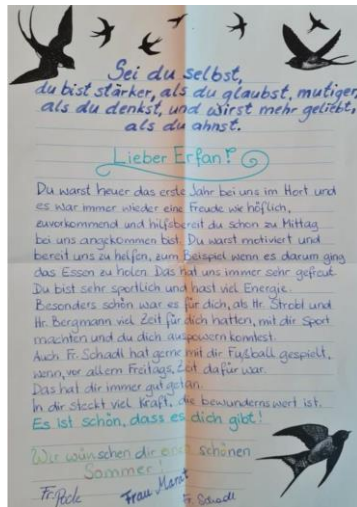 Sei du selbst,
du bist stärker, als du glaubst, mutiger,
als du denkst, und wirst mehr geliebt,
als du ahnst.
Lieber Erfan!
Du warst heuer das erste Jahr bei uns im Hort und
es war immer wieder eine Freude wie höflich,
zuvorkommend und hilfsbereit du schon zu Mittag
bei uns angekommen bist. Du warst motiviert und
bereit uns zu helfen, zum Beispiel wenn es darum ging
das Essen zu holen. Das hat uns immer sehr gefreut.
Du bist sehr sportlich und hast viel Energie.
Besonders schön war es für dich, als Hr. Strobl und
Hr. Bergmann viel Zeit für dich hatten, mit dir Sport
machten und du dich auspowern konntest.
Auch Fr. Schadl hat gerne mit dir Fußball gespielt,
wenn, vor allem Freitags, Zeit dafür war.
Das hat dir immer gut getan.
In dir steckt viel Kraft, die bewundernswert ist.
Es ist schön, dass es dich gibt!
Wir wünschen dir einen schönen
Sommer!
Fr. Frau Fr. Schadl